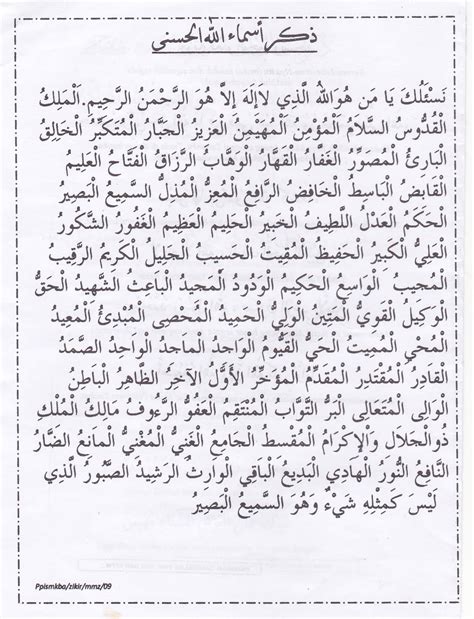 ذكر أسماء الله الحسنى
نَسْئَلُكَ يَا مَن هُوَاللهُ الَّذِي لاَإِلَهَ إِلاَّ هُوَ الرَّحْمَنُ الرَّحِيم. اَلْمَلِكُ
الْقُدُّوسُ السَّلاَمُ الْمُؤْمِنُ الْمُهَيْمِنُ الْعَزِيزُ الْجَبَّارُ الْمُتَكَبِّرُ الْخَالِقُ
الْبَارِئُ الْمُصَوِّرُ الْغَفَّارُ الْقَهَّارُ الْوَهَّابُ الرَّزَّاقُ الْفَتَّاحُ الْعَلِيمُ
الْقَابِضُ الْبَاسِطُ الْخَافِضُ الرَّافِعُ الْمُعِزُّ الْمُذِلُّ السَّمِيعُ الْبَصِيرُ
الْحَكَمُ الْعَدْلُ اللَّطِيفُ الْخَبِيرُ الْحَلِيمُ الْعَظِيمُ الْغَفُورُ الشَّكُورُ
الْعَلِيُّ الْكَبِيرُ الْحَفِيظُ الْمُقِيتُ الْحَسِيبُ الْجَلِيلُ الْكَرِيمُ الرَّقِيبُ
الْمُجِيبُ الْوَاسِعُ الْحَكِيمُ الْوَدُودُ الْمَجِيدُ الْبَاعِثُ الشَّهِيدُ الْحَقُّ
الْوَكِيلُ الْقَوِيُّ الْمَتِينُ الْوَلِيُّ الْحَمِيدُ الْمُحْصِى الْمُبْدِئُ الْمُعِيدُ
الْمُحْيِ الْمُمِيتُ الْحَيُّ الْقَيُّومُ الْوَاجِدُ الْمَاجِدُ الْوَاحِدُ الصَّمَدُ
الْقَادِرُ الْمُقْتَدِرُ الْمُقَدِّمُ الْمُؤَخِّرُ الأَوَّلُ الآخِرُ الظَّاهِرُ الْبَاطِنُ
الْوَالِى الْمُتَعَالِى الْبَرُّ التَّوَّابُ الْمُنْتَقِمُ الْعَفُوُّ الرَّءُوفُ مَالِكُ الْمُلْكِ
ذُوالْجَلاَلِ وَالإِكْرَامِ الْمُقْسِطُ الْجَامِعُ الْغَنِيُّ الْمُغْنِيُّ الْمَانِعُ الضَّارُ
النَّافِعُ النُّورُ الْهَادِي الْبَدِيعُ الْبَاقِي الْوَارِثُ الرَّشِيدُ الصَّبُورُ الَّذِي
لَيْسَ كَمِثْلِهِ شَيْءٌ وَهُوَ السَّمِيعُ الْبَصِيرُ
Ppismkba/zikir/mmz/09